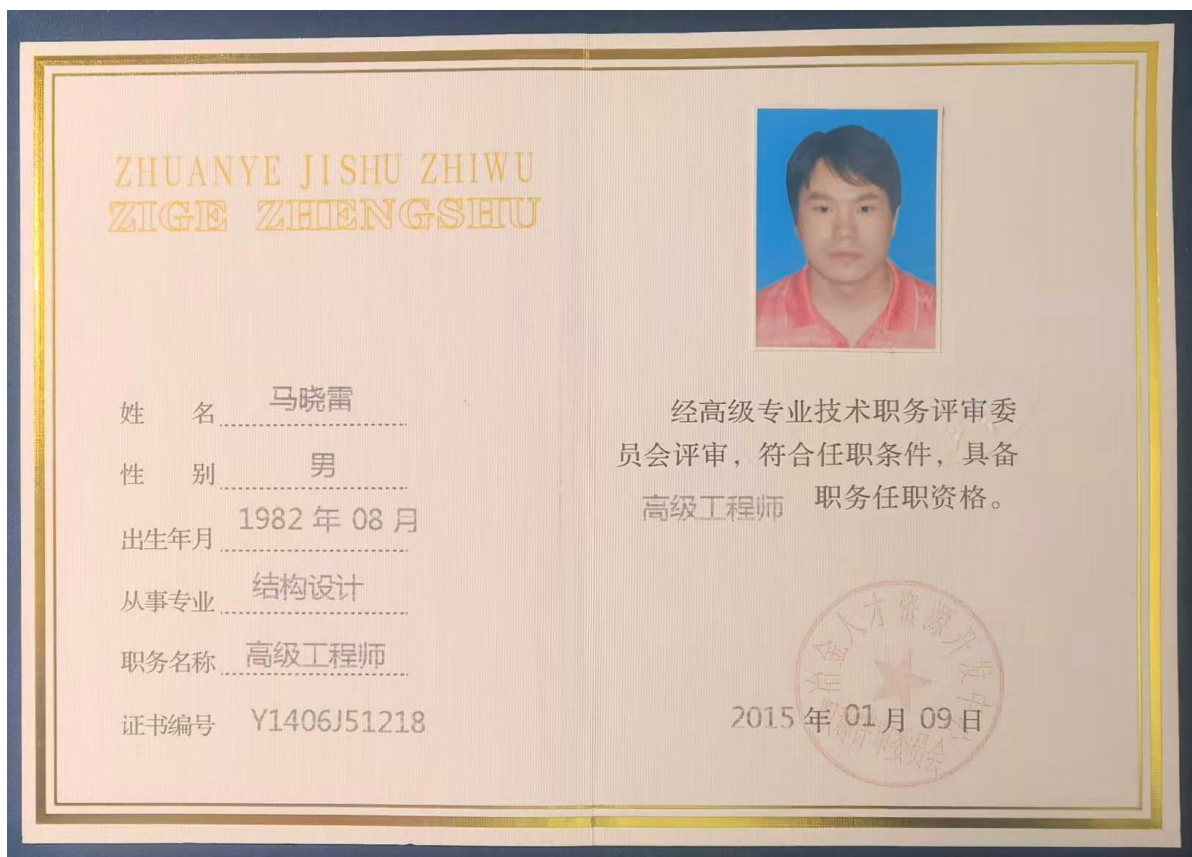 ZHUANYE JISHU ZHIWU
ZIGE ZHENGSHU
姓 名 马晓雷
性 别 男
出生年月 1982 年 08 月
从事专业 结构设计
职务名称 高级工程师
证书编号 Y1406J51218
经高级专业技术职务评审委
员会评审，符合任职条件，具备
高级工程师 职务任职资格。
冶金人才资源开发中心
2015 年 01 月 09 日